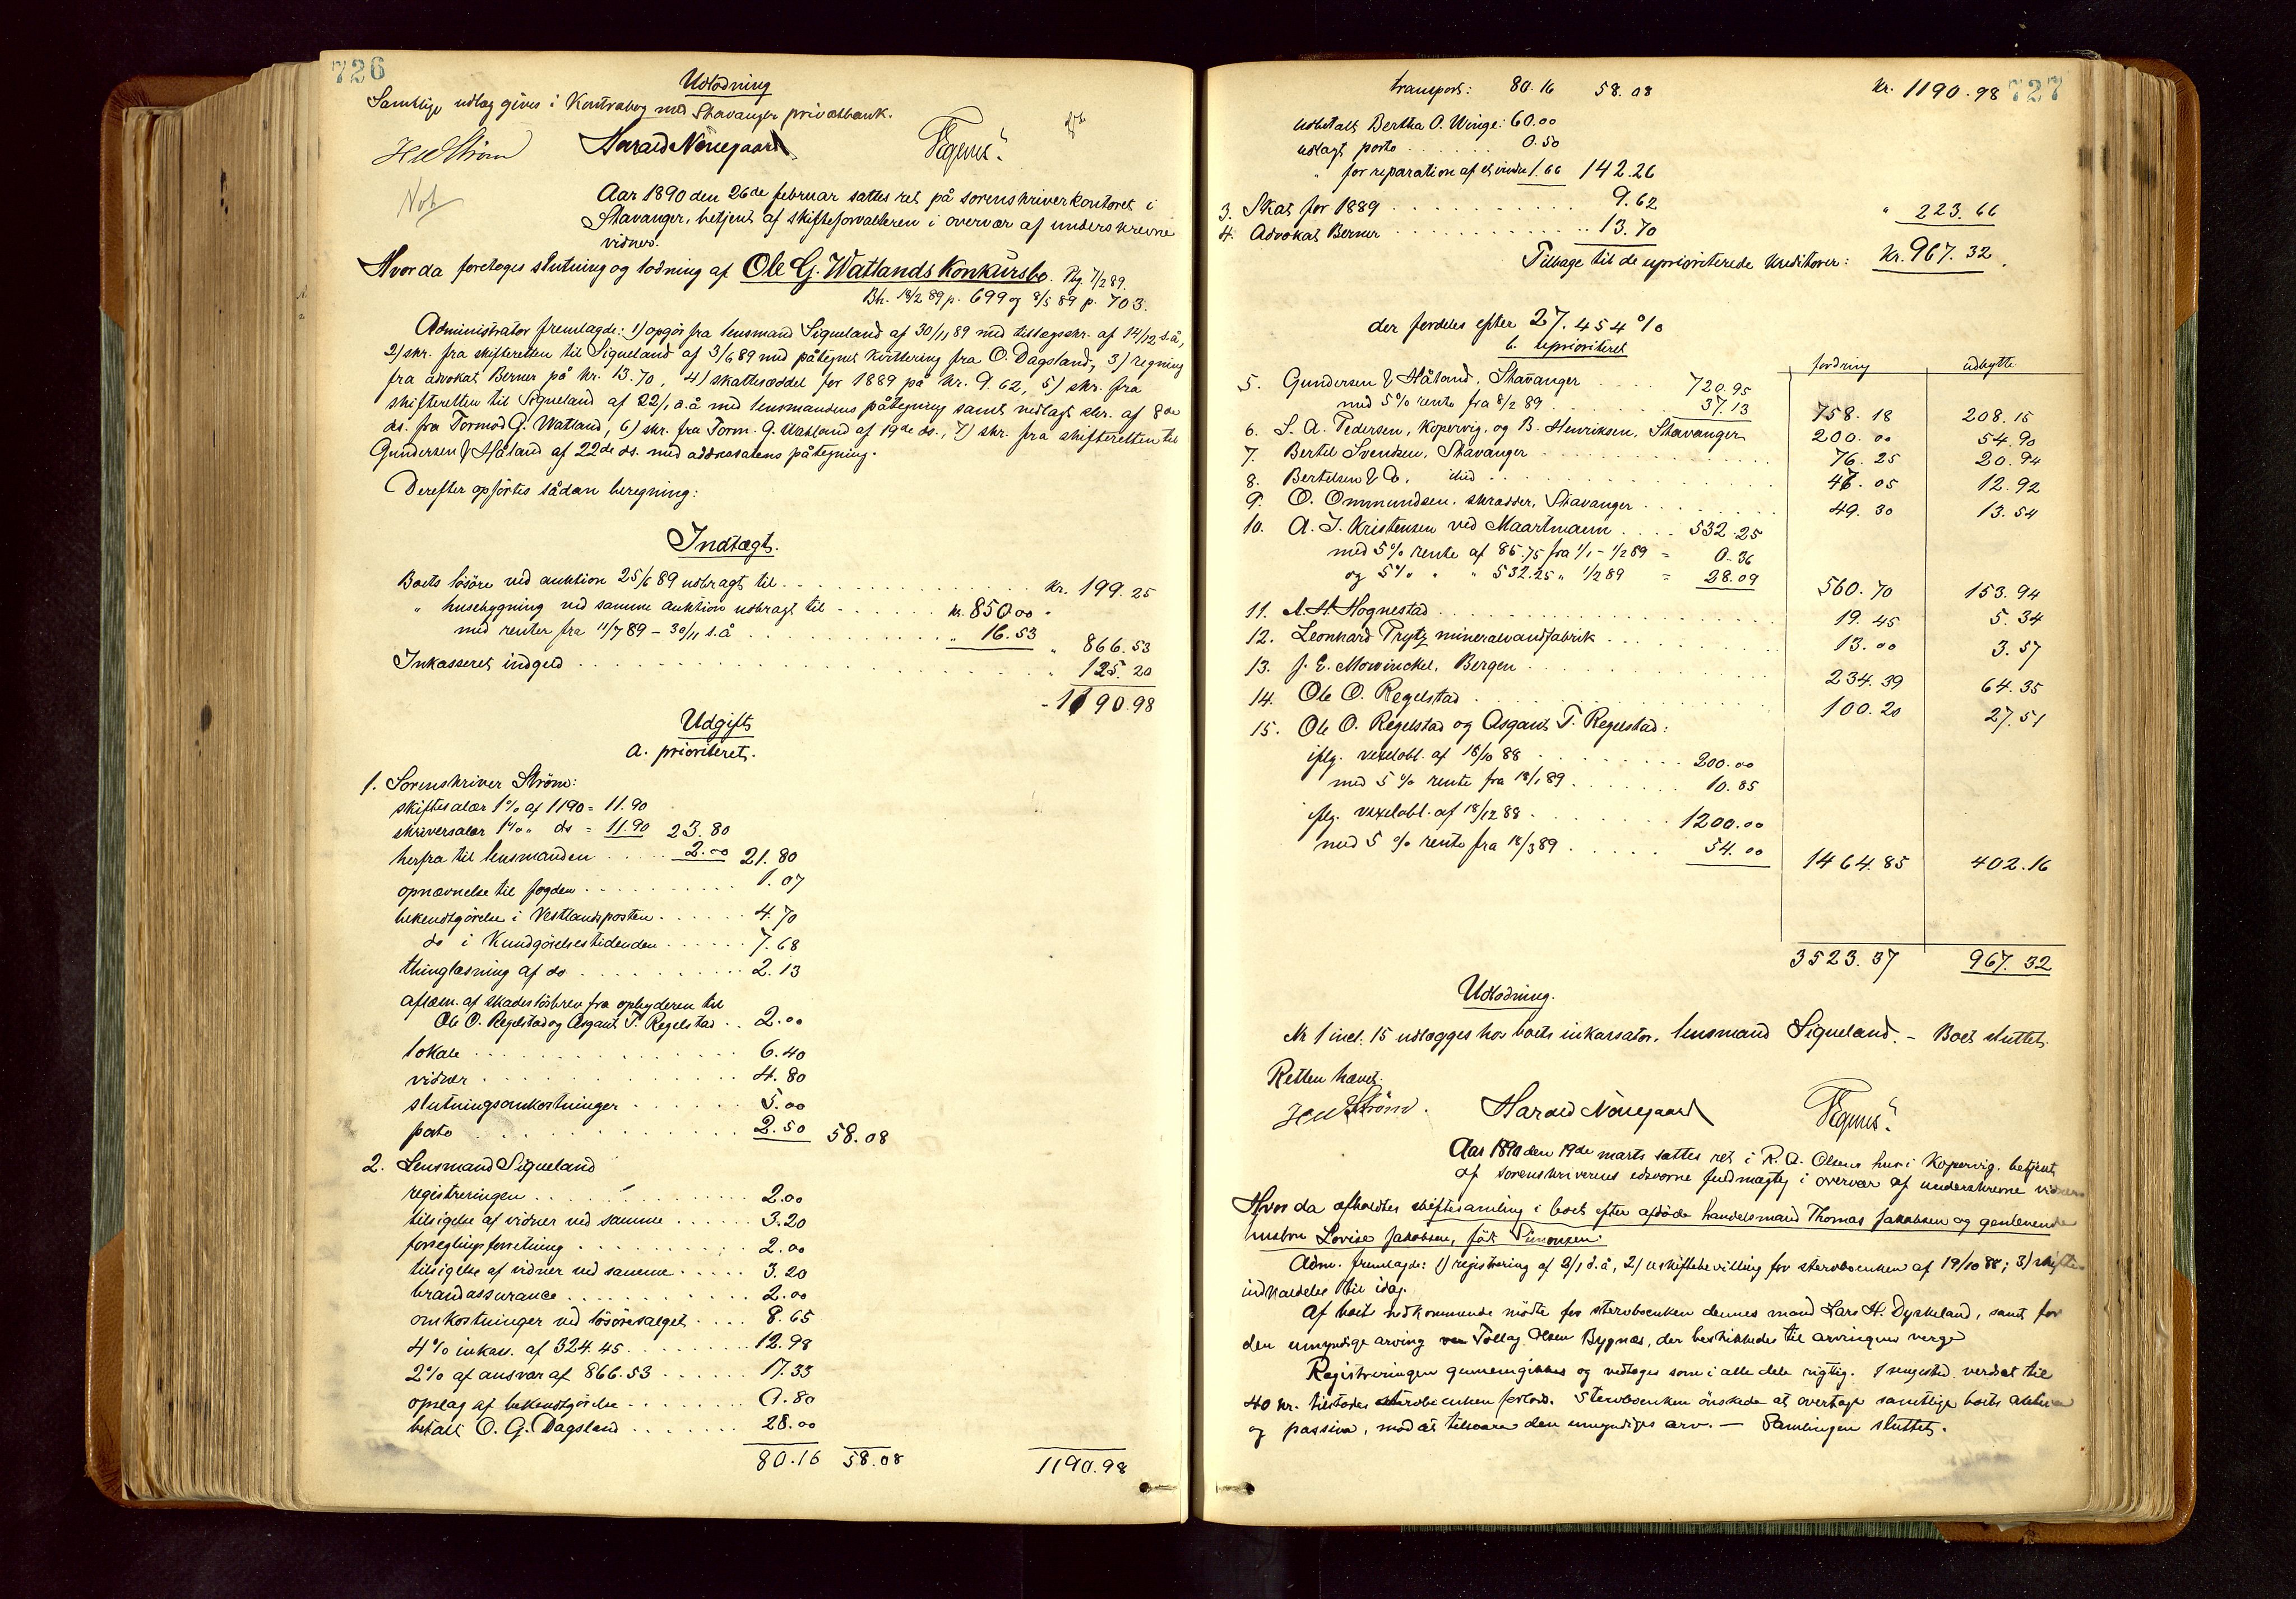 726
Udlodning
Samtlige udlæg gives i Kontrabog med Stavanger privatbank.
Harald Norregaard
Not
Aar 1890 den 26de februar sattes ret på sorenskriverkontoret i
Stavanger, betjent af skifteforvalteren i overvær af underskrevne
vidner.
Hvor da foretoges slutning og lodning af Ole G. Watlands Konkursbo. Reg. 7/2 89.
Bh. 18/2 89 p. 699 og 8/5 89 p. 703.
Administrator fremlagde: 1) opgör fra lensmand Siqueland af 30/11 89 med tillægsskr. af 14/12 s.å,
2) skr. fra skifteretten til Siqueland af 3/6 89 med påtegnet kvittering fra O. Dagsland, 3) regning
fra advokat Berner på kr. 13.70, 4) skatteseddel for 1889 på kr. 9.62, 5) skr. fra
skifteretten til Siqueland af 22/1 d.å med lensmandens påtegning samt vedlagt skr. af 8de
ds. fra Tormod G. Watland, 6) skr. fra Torm. G. Watland af 19de ds., 7) skr. fra skifteretten til
Gundersen & Håland af 22de ds. med addressatens påtegning.
Derefter opförtes sådan beregning:
Indtægt.
Boets lösöre ved auktion 25/6 89 udbragt til . . . kr. 199.25
" husebygning ved samme auktion udbragt til . . . kr. 850.00
med renter fra 11/7 89 - 30/11 s.å . . . " 16.53 " 866.53
Inkasseret indgeld . . . " 125.20
- 1190.98
Udgift
a. prioriteret.
1. Sorenskriver Ström:
skiftesalær 1% af 1190 = 11.90
skriversalær 1% " do = 11.90 23.80
herfra til lensmanden . . . 2.00 21.80
opnævnelse til fogden . . . 1.07
bekendtgörelse i Vestlandsposten . . . 4.70
do i Kundgörelsestidenden . . . 7.68
thinglæsning af do . . . 2.13
aflæsn. af skadeslösbrev fra opbyderen til
Ole O. Regelstad og Asgaut T. Regelstad . . 2.00
lokale . . . 6.40
vidner . . . 4.80
slutningsomkostninger . . . 5.00
porto . . . 2.50 58.08
2. Lensmand Siqueland
registreringen . . . 2.00
tilsigelse af vidner ved samme . . . 3.20
forseglingsforretning . . . 2.00
tilsigelse af vidner ved samme . . . 3.20
brandassurance . . . 2.00
omkostninger ved lösöresalget . . . 8.65
4% inkass. af 324.45 . . . 12.98
2% af ansvar af 866.53 . . . 17.33
opslag af bekendtgörelse . . . 0.80
betalt O. G. Dagsland . . . 28.00
80.16 58.08 1190.98
727
transport: 80.16 58.08 kr. 1190.98
udbetalt Bertha O. Winge: 60.00
udlagt porto . . . 0.50
" for reparation af et vindu 1.66 142.26
3. Skat for 1889 . . . 9.62
4. Advokat Berner . . . 13.70 " 223.66
Tilbage til de uprioriterede kreditorer: kr. 967.32.
der fordeles efter 27.454%
b. uprioriteret
fordring udbytte
5. Gundersen & Håland, Stavanger . . . 720.95
med 5% rente fra 8/2 89 . . . 37.13 758.18 208.15
6. S. A. Pedersen, Kopervig, og B. Henriksen, Stavanger 200.00 54.90
7. Bertil Svendsen, Stavanger . . . 76.25 20.94
8. Bertelsen & Co, ibid . . . 47.05 12.92
9. O. Ommundsen, skrædder, Stavanger . . . 49.30 13.54
10. A. J. Kristensen ved Maartmann . . . 532.25
med 5% rente af 85.75 fra 1/1 - 1/2 89 = 0.36
og 5% " " 532.25 " 1/2 89 = 28.09 560.70 153.94
11. A. H. Hognestad . . . 19.45 5.34
12. Leonhard Prytz mineralvandfabrik . . . 13.00 3.57
13. J. E. Mowinckel, Bergen . . . 234.39 64.35
14. Ole O. Regelstad . . . 100.20 27.51
15. Ole O. Regelstad og Asgaut T. Regelstad:
iflg. vexelobl. af 18/10 88 . . . 200.00
med 5% rente fra 18/1 89 . . . 10.85
iflg. vexelobl. af 18/12 88 . . . 1200.00
med 5% rente fra 18/3 89 . . . 54.00 1464.85 402.16
3523.37 967.32
Udlodning.
Nr 1 incl. 15 udlægges hos boets inkassator, lensmand Siqueland. - Boet sluttet.
Retten hævet.
Harald Norregaard
Aar 1890 den 19de marts sattes ret i R. A. Olsens hus i Kopervig, betjent
af sorenskriverens edsvorne fuldmægtig i overvær af underskrevne vidner
Hvor da afholdtes skiftesamling i boet efter afdöde handelsmand Thomas Jakobsen og gjenlevende
hustru Lovise Jakobsen, föd Simonsen.
Adm. fremlagde: 1) registrering af 2/1 d.å, 2) uskiftebevilling for stervboenken af 19/10 88; 3) skifte-
indkaldelse til idag.
Af boets vedkommende mödte for stervboenken dennes mand Lars H. Dyrkeland, samt for
den umyndige arving Tollag Olsen Bygnæs, der beskikkedes til arvingens verge
Registreringen gjennemgikkes og vedtoges som i alle dele rigtig. 1 sengested verdsat til
40 kr. tilstodes stervboenken forlods. Stervboenken önskede at overtage samtlige boets aktiva
og passiva, mod at tilsvare den umyndiges arv. — Samlingen sluttet.